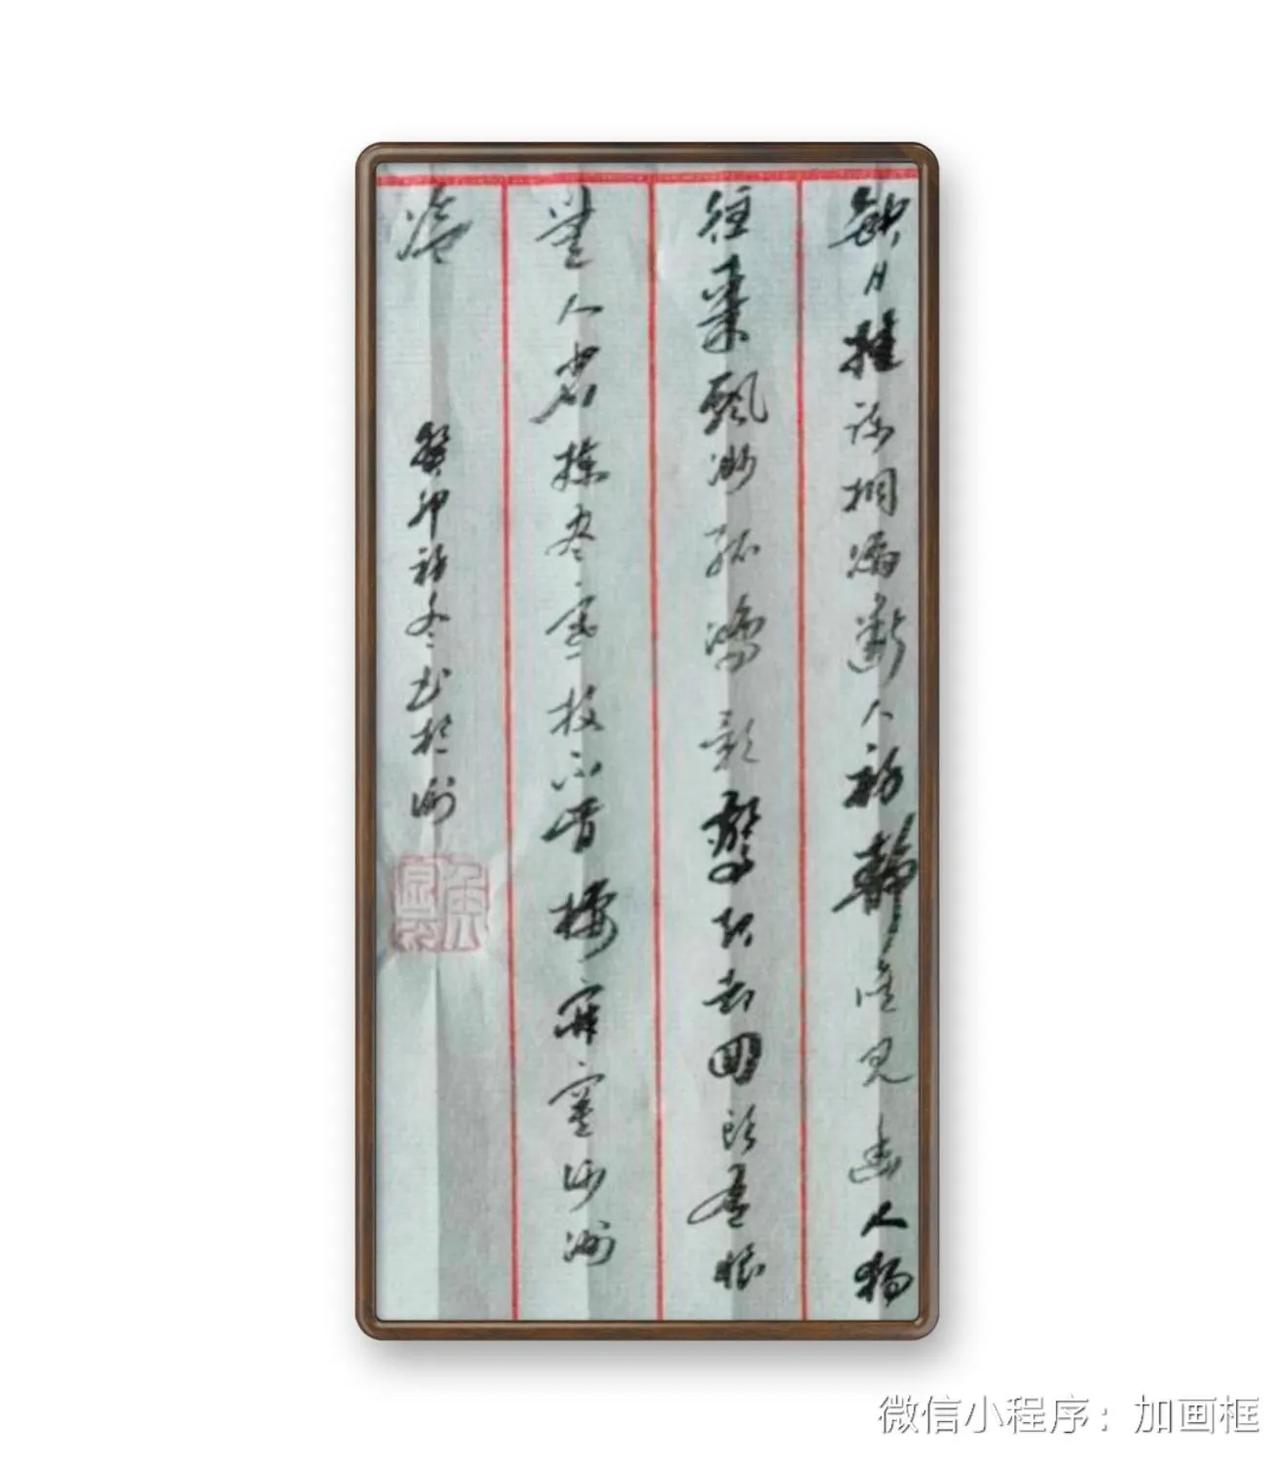 缺月挂疏桐漏斷人初静谁见幽人独
往來飘渺孤鸿影驚起却回头有恨
無人省拣尽寒枝不肯棲寂寞沙洲
冷
癸卯初冬书於
微信小程序：加画框